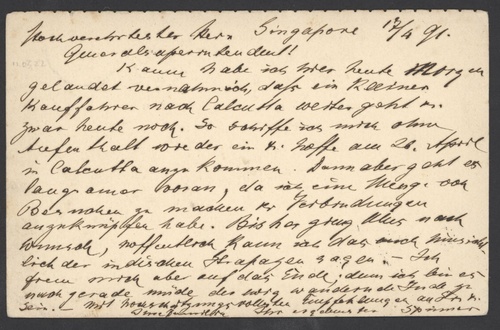 Hochverehrtester Herr Singapore 17/4 91.
Generalsuperintendent!
Kaum habe ich hier heute Morgen
gelandet vernahm ich, dass ein kleiner
Kauffahrer nach Calcutta weiter geht u.
zwar heute noch. So schiffe ich mich ohne
Aufenthalt wieder ein u. hoffe am 26. April
in Calcutta anzukommen. Dann aber geht es
langsamer voran, da ich eine Menge von
Besuchen zu machen u. Verbindungen
anzuknüpfen habe. Bisher ging Alles nach
Wunsch, hoffentlich kann ich das auch hinsicht
lich der indischen sagen. – Ich
freue mich aber auf das Ende, denn ich bin es
nach gerade müde der ewig wandernde Jude zu
sein. – Mit hochachtungsvollsten Empfehlungen an
Ihr ergebenster Spinner